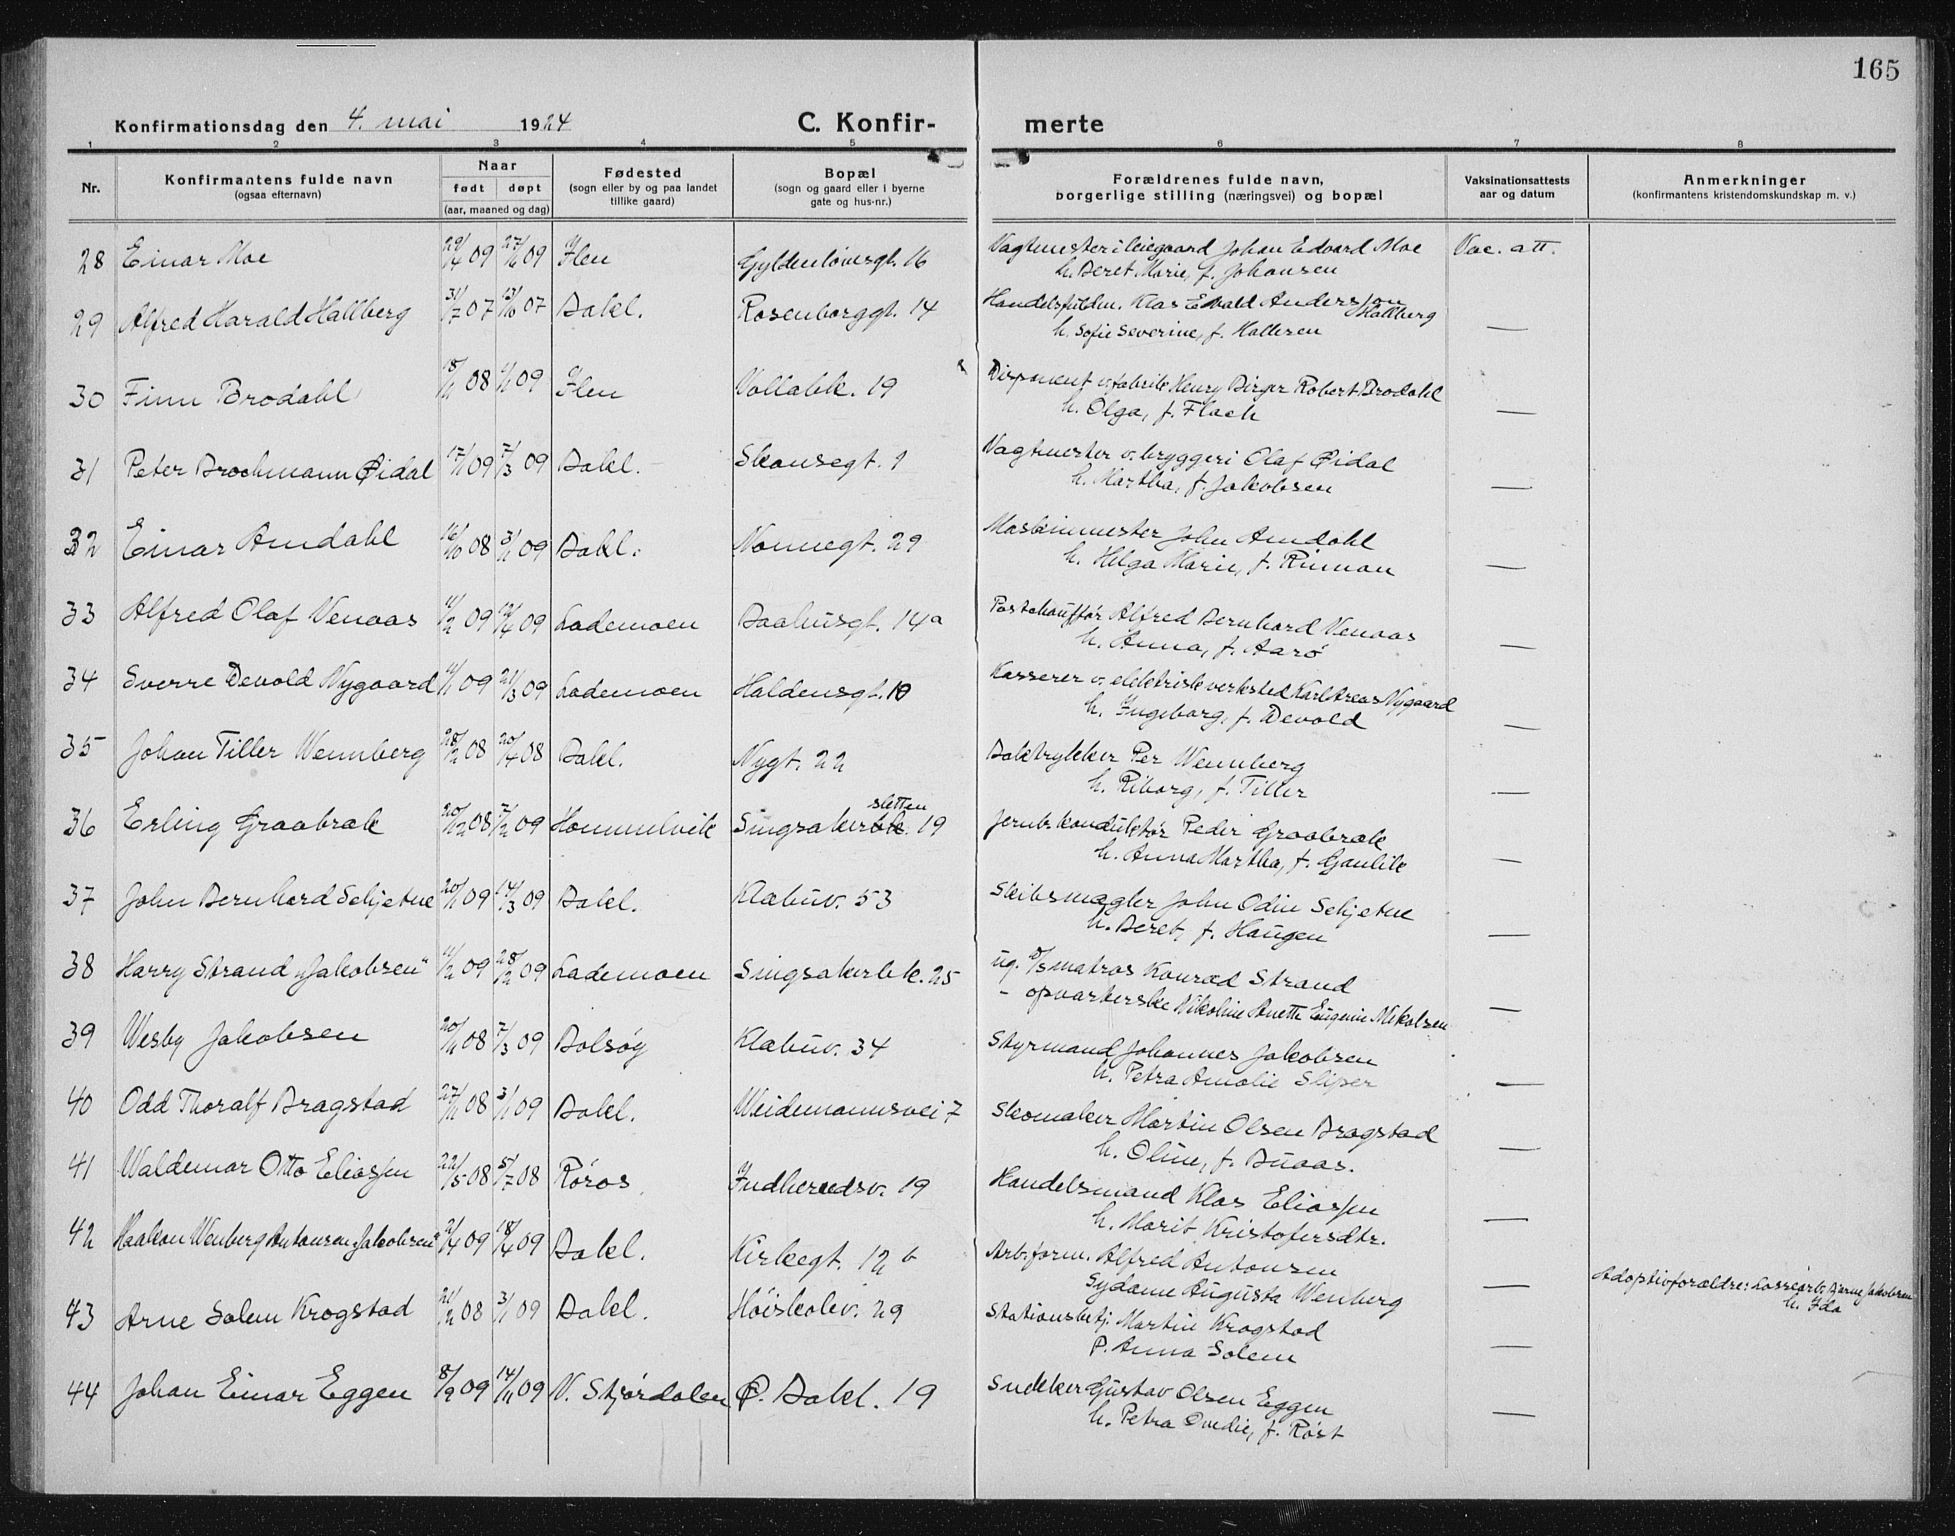 165
Konfirmationsdag den 4. mai 1924 C. Konfir- merte
1 2 3 4 5 6 7 8
Nr. Konfirmantens fulde navn (ogsaa efternavn) Naar født døpt (aar, maaned og dag) Fødested (sogn eller by og paa landet tillike gaard) Bopæl (sogn og gaard eller i byerne gate og hus-nr.) Forældrenes fulde navn, borgerlige stilling (næringsvei) og bopæl Vaksinationsattests aar og datum Anmerkninger (konfirmantens kristendomskundskap m. v.)
28 Einar Moe 29/4 09 27/6 09 Ilen Gyldenløvesgt. 16 Vagtmester i leiegaard Johan Edvard Moe Vac. att.
h. Beret Marie, f. Johansen
29 Alfred Harald Hallberg 31/7 07 13/10 07 Bakl. Rosenborggt. 14 Handelsfuldm. Klas Edvald Andersson Hallberg —
h. Sofie Severine, f. Hallesen
30 Finn Brodahl 18/11 08 1/1 09 Ilen Vollabk. 19 Disponent v. fabrik Henry Birger Robert Brodahl —
h. Olga, f. Flach
31 Peter Brochmann Øidal 17/1 09 7/3 09 Bakl. Skansegt. 1 Vagtmester v. bryggeri Olaf Øidal —
h. Martha, f. Jakobsen
32 Einar Amdahl 16/10 08 3/1 09 Bakl. Nonnegt. 29 Maskinmester John Amdahl —
h. Helga Marie, f. Rinnan
33 Alfred Olaf Venaas 11/2 09 12/4 09 Lademoen Baahusgt. 14a Postchauffør Alfred Bernhard Venaas —
h. Anna, f. Aarø
34 Sverre Devold Nygaard 11/1 09 21/3 09 Lademoen Haldensgt. 10 Kasserer v. elektrisk verksted Karl Areas Nygaard —
h. Ingeborg, f. Devold
35 Johan Tiller Wennberg 28/2 08 20/4 08 Bakl. Nygt. 22 Boktrykker Per Wennberg —
h. Riborg, f. Tiller
36 Erling Graabræk 20/12 08 7/2 09 Hommelvik Singsakerbk. sletten 19 Jernb.konduktør Peder Graabræk —
h. Anna Martha, f. Gaulik
37 John Bernhard Schjetne 20/1 09 14/3 09 Bakl. Klæbuv. 53 Skibsmægler John Odin Schjetne —
h. Beret, f. Haugen
38 Harry Strand "Jakobsen" 11/2 09 28/2 09 Lademoen Singsakerbk. 25 ug. o/s matros Konrad Strand —
- opvarterske Nikoline Anette Eugenie Nikolsen
39 Wesby Jakobsen 20/11 08 7/3 09 Bolsøy Klæbuv. 34 Styrmand Johannes Jakobsen —
h. Petra Amalie Sliper
40 Odd Thoralf Bragstad 27/11 08 3/1 09 Bakl. Weidemannsvei 7 Skomaker Martin Olsen Bragstad —
h. Oline, f. Buaas.
41 Waldemar Otto Eliassen 22/5 08 5/7 08 Røros Indherredsv. 19 Handelsmand Klas Eliassen —
h. Marit Kristofersdtr.
42 Haakon Wenberg Antonsen "Jakobsen" 2/4 09 18/4 09 Bakl. Kirkegt. 12 b Arb.form. Alfred Antonsen — Adoptivforældre: Lossearb. Bjarne Jakobsen
Sydame Augusta Wenberg h. Ida
43 Arne Solem Krogstad 21/2 08 3/1 09 Bakl. Høiskolev. 29 Stationsbetj. Martin Krogstad —
P. Anna Solem
44 Johan Einar Eggen 8/9 09 14/11 09 V. Stjørdalen Ø. Bakl. 19 Snekker Gustav Olsen Eggen —
h. Petra Ovedie, f. Røst